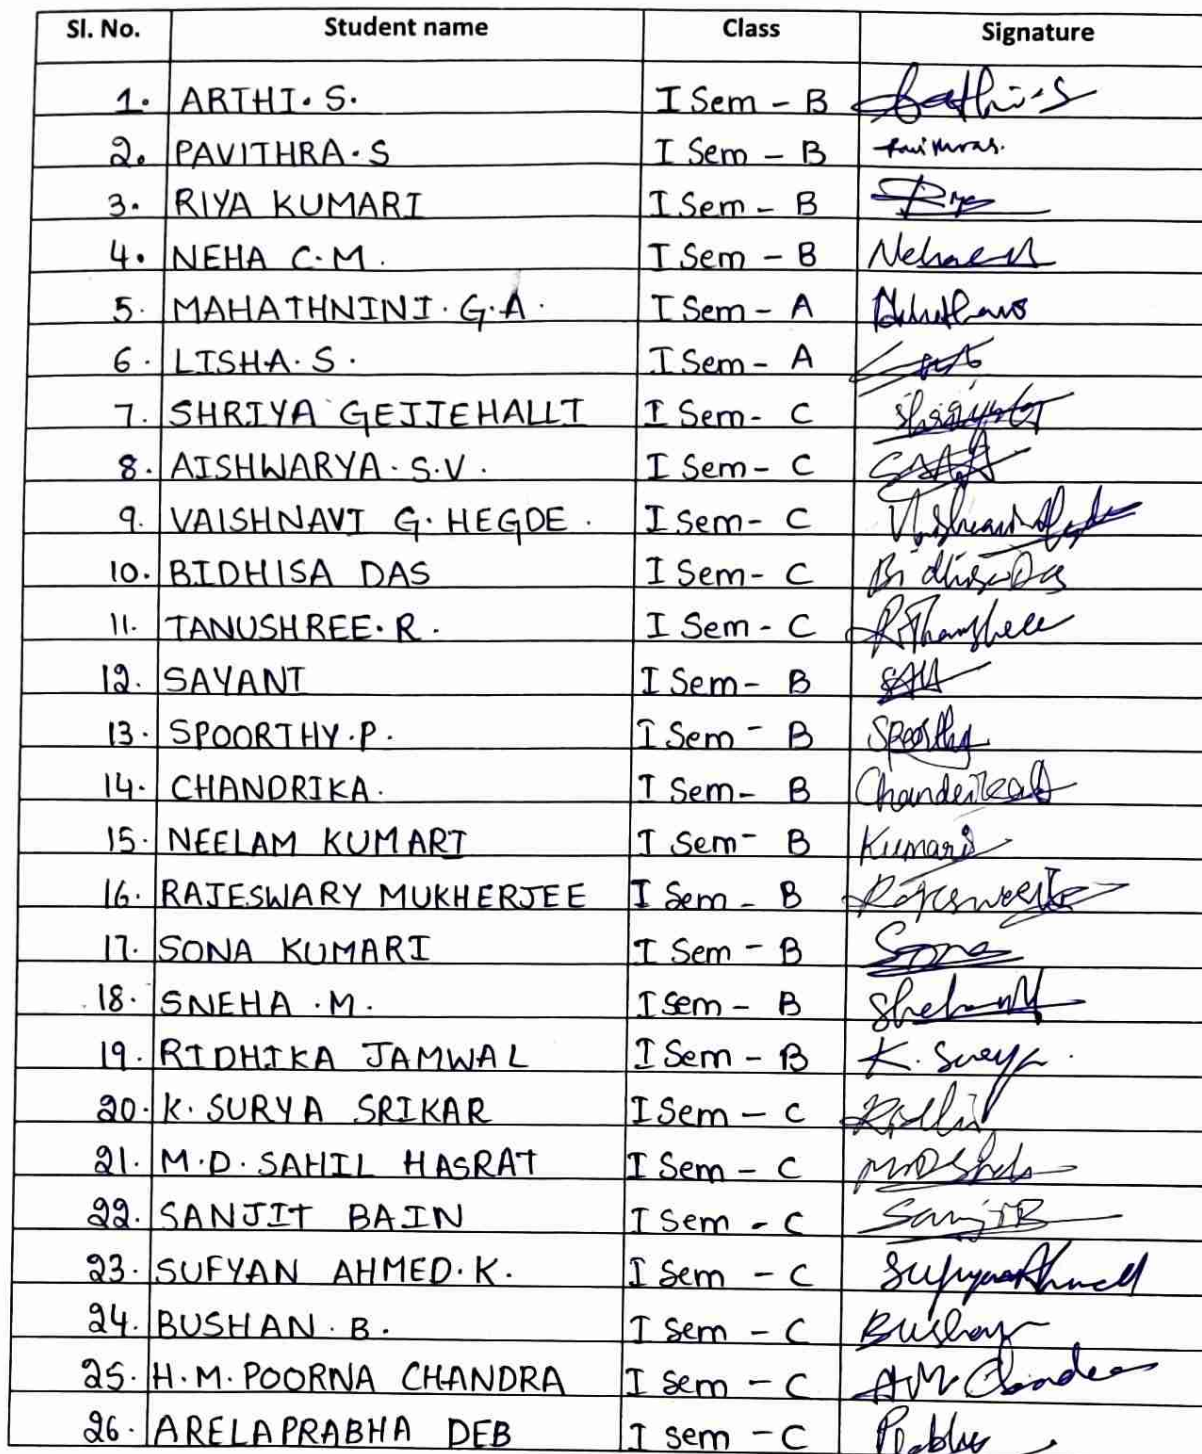 Sl. No. Student name Class Signature
1. ARTHI. S. I Sem - B
2. PAVITHRA. S I Sem - B
3. RIYA KUMARI I Sem - B
4. NEHA C. M. I Sem - B
5. MAHATHNINI. G. A. I Sem - A
6. LISHA. S. I Sem - A
7. SHRIYA GEJJEHALLI I Sem - C
8. AISHWARYA. S. V. I Sem - C
9. VAISHNAVI G. HEGDE. I Sem - C
10. BIDHISA DAS I Sem - C Bidhisa Das
11. TANUSHREE. R. I Sem - C
12. SAYANI I Sem - B
13. SPOORTHY. P. I Sem - B Spoorthy
14. CHANDRIKA. I Sem - B
15. NEELAM KUMARI I Sem - B Kumari
16. RAJESWARY MUKHERJEE I Sem - B
17. SONA KUMARI I Sem - B Sona
18. SNEHA . M. I Sem - B
19. RIDHIKA JAMWAL I Sem - B K. Surya.
20. K. SURYA SRIKAR I Sem - C
21. M. D. SAHIL HASRAT I Sem - C
22. SANJIT BAIN I Sem - C
23. SUFYAN AHMED. K. I Sem - C
24. BUSHAN. B. I Sem - C Bushan
25. H. M. POORNA CHANDRA I Sem - C
26. ARELAPRABHA DEB I Sem - C